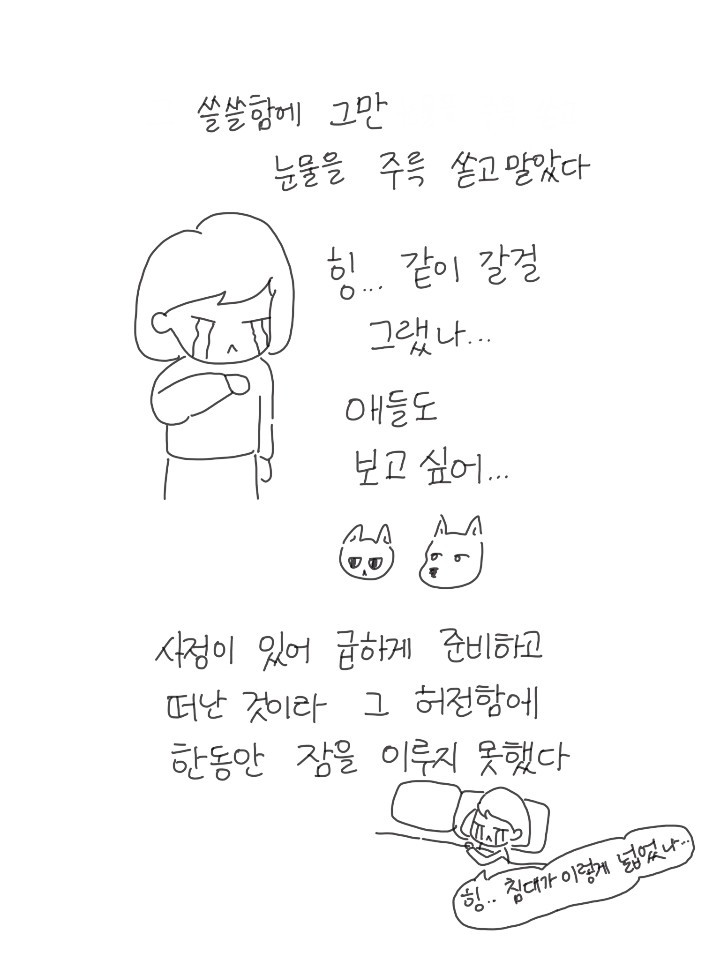 쓸쓸함에 그만
눈물을 주륵 쏟고말았다
힝... 같이 갈걸
그랬나...
애들도
보고 싶어...
사정이 있어 급하게 준비하고
떠난 것이라 그 허전함에
한동안 잠을 이루지 못했다
힝.. 침대가 이렇게 넓었나...